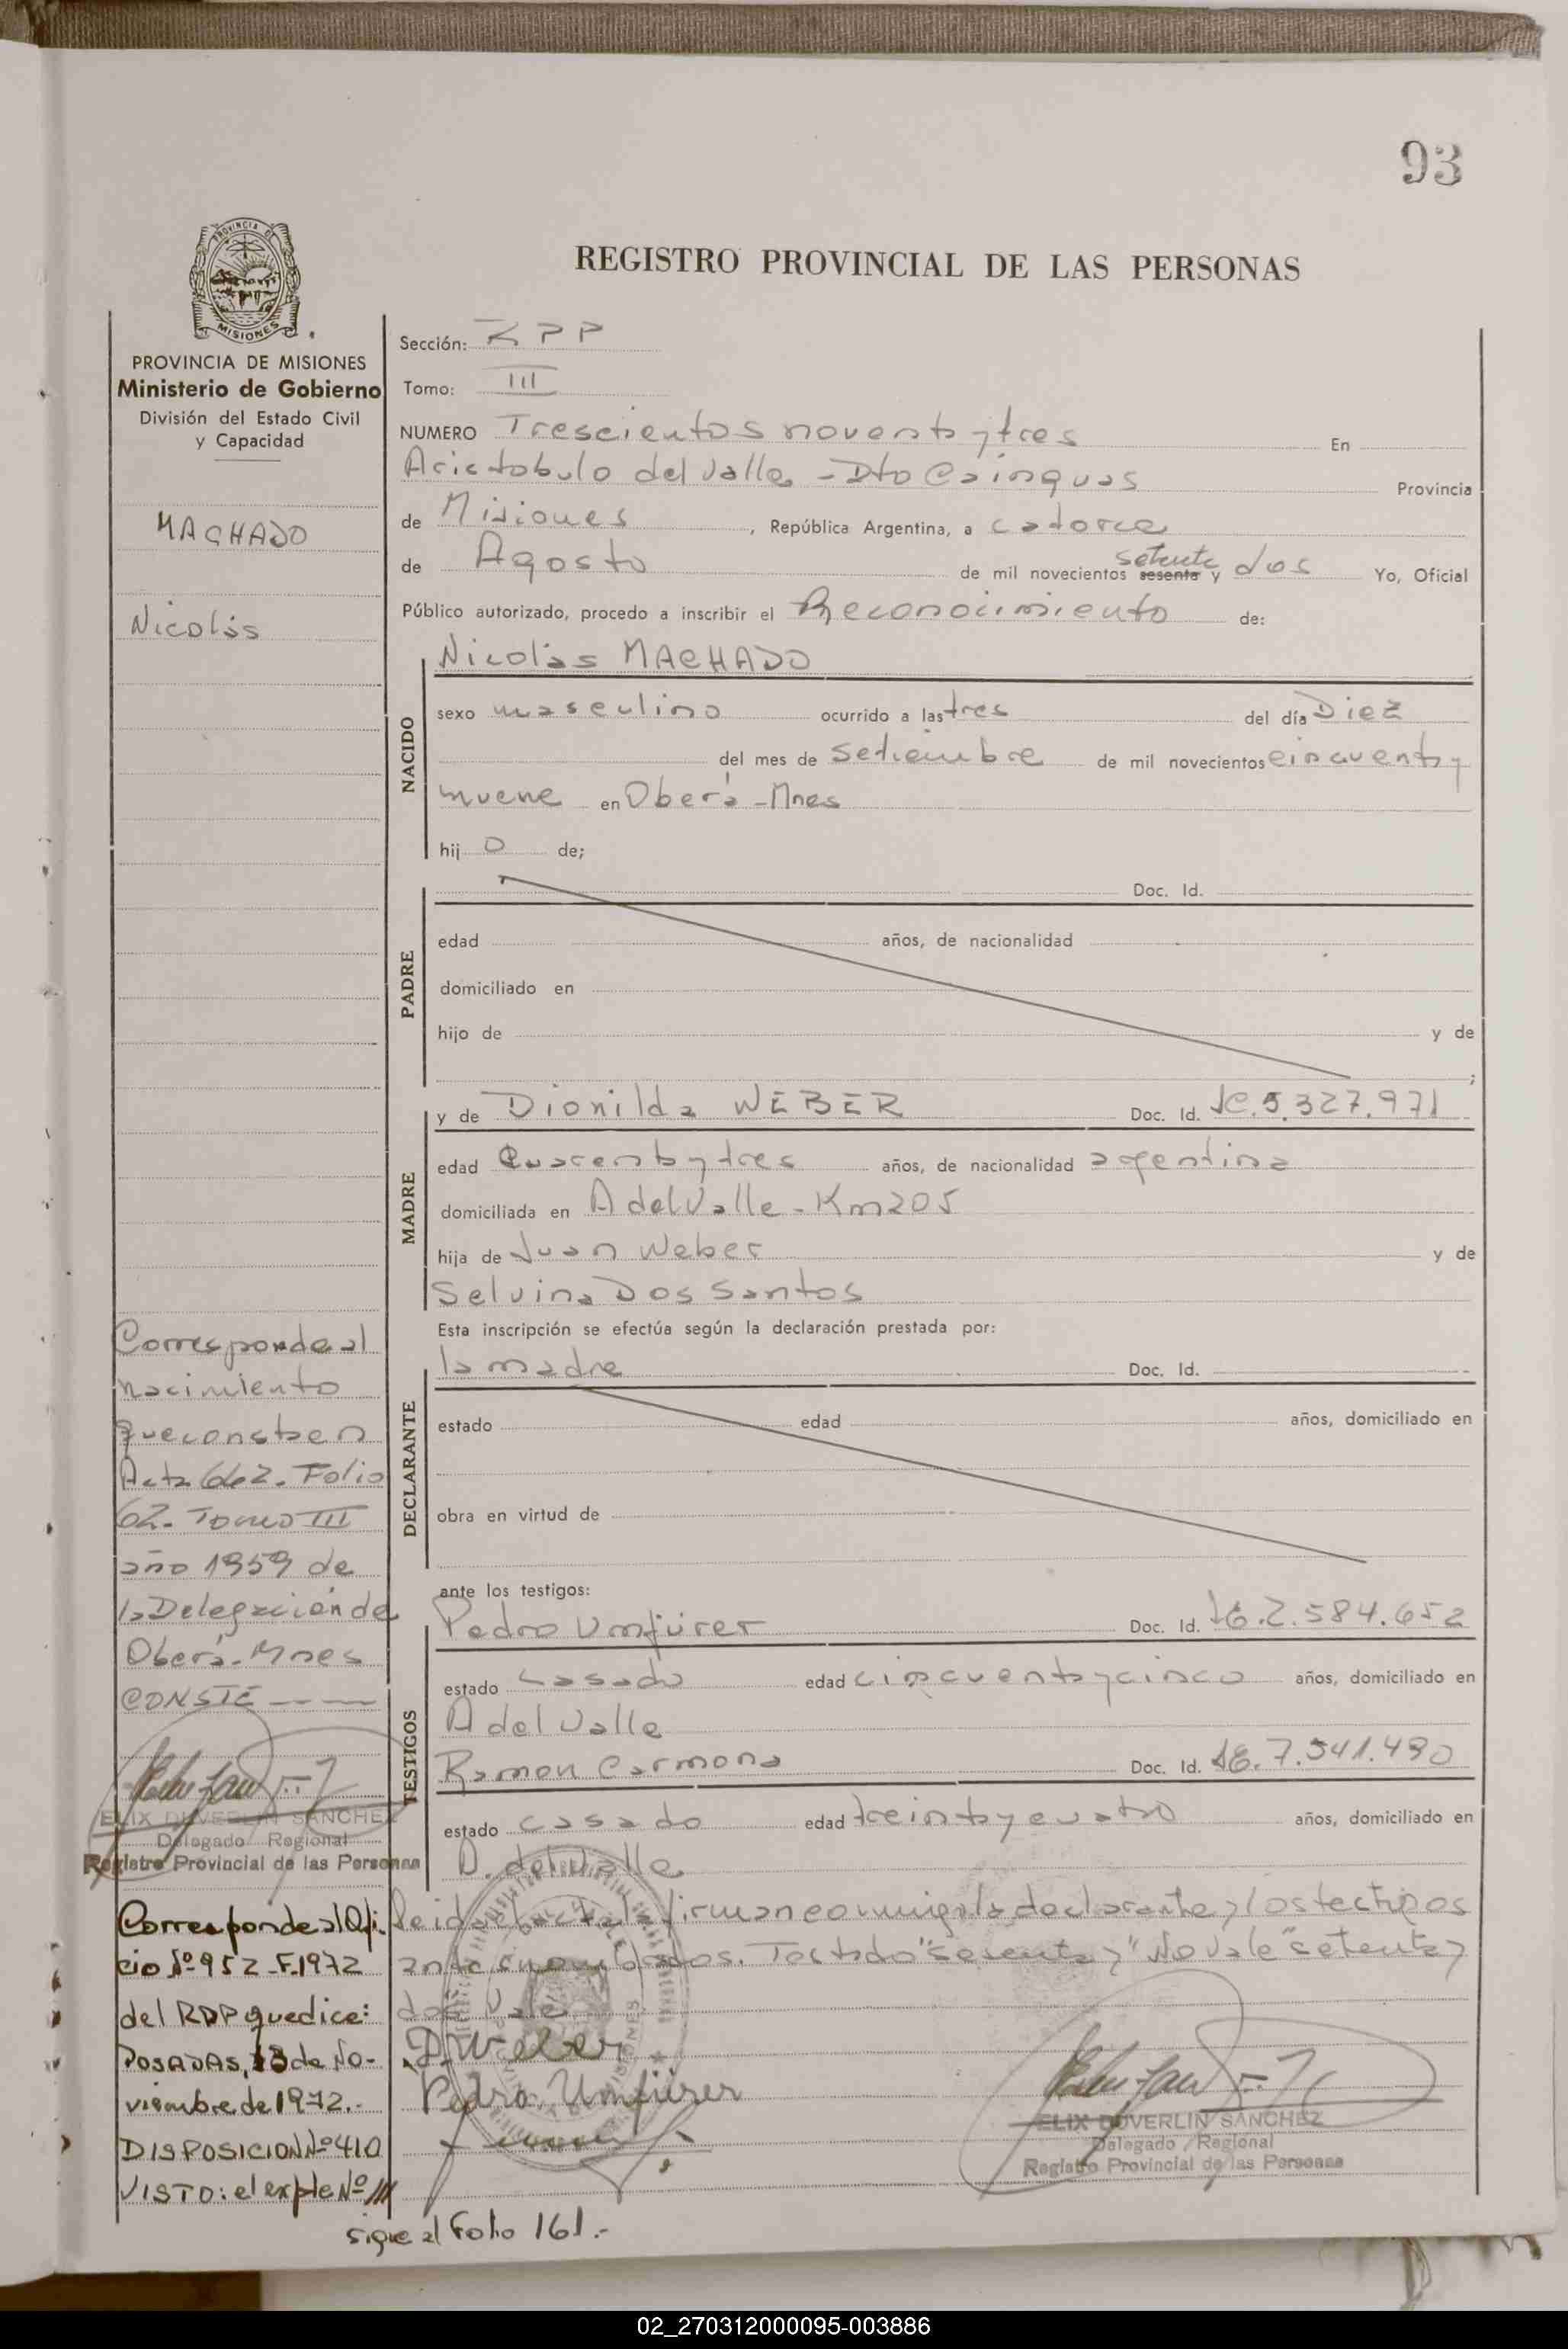 93
REGISTRO PROVINCIAL DE LAS PERSONAS
PROVINCIA DE MISIONES
Ministerio de Gobierno
División del Estado Civil
y Capacidad
MACHADO
Nicolás
Sección: RPP
Tomo: III
NUMERO Trescientos noventa y tres En
Aristobulo del Valle - Dto Cainguas Provincia
de Misiones, República Argentina, a catorce
de Agosto de mil novecientos sesenta y setenta dos Yo, Oficial
Público autorizado, procedo a inscribir el Reconocimiento de:
NACIDO
Nicolás MACHADO
sexo masculino ocurrido a las tres del día Diez
del mes de Setiembre de mil novecientos cincuenta y
nueve en Oberá - Mnes
hij o de;
PADRE
Doc. Id.
edad años, de nacionalidad
domiciliado en
hijo de y de
;
MADRE
y de Dionilda WEBER Doc. Id. LC. 5.327.971
edad Cuarenta y tres años, de nacionalidad argentina
domiciliada en A del Valle - Km 205
hija de Juan Weber y de
Selvina Dos Santos
Esta inscripción se efectúa según la declaración prestada por:
DECLARANTE
la madre Doc. Id.
estado edad años, domiciliado en
obra en virtud de
ante los testigos:
TESTIGOS
Pedro Umfürer Doc. Id. 2.584.652
estado casado edad cincuenta y cinco años, domiciliado en
A del Valle
Ramon Carmona Doc. Id. 7.541.490
estado casado edad treinta y cuatro años, domiciliado en
A. del Valle
Leida el acta la firman conmigo la declarante y los testigos
antes nombrados. Testado "sesenta y" No vale "setenta y
dos" Vale
D. Weber
Pedro Umfürer
ELIX DUVERLIN SANCHEZ
Delegado Regional
Registro Provincial de las Personas
Corresponde al
nacimiento
que consta en
Acta 662 - Folio
62 - Tomo III
año 1959 de
la Delegación de
Oberá - Mnes
CONSTE
ELIX DUVERLIN SANCHEZ
Delegado Regional
Registro Provincial de las Personas
Corresponde al Ofi-
cio Nº 952 - F.1972
del RPP que dice:
POSADAS, 13 de No-
viembre de 1972.-
DISPOSICION Nº 410
VISTO: el expte Nº
sigue al Folio 161.-
02_270312000095-003886